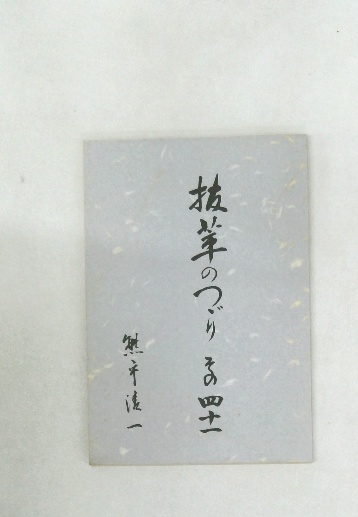 抜萃のつゞり その四十一
熊平清一